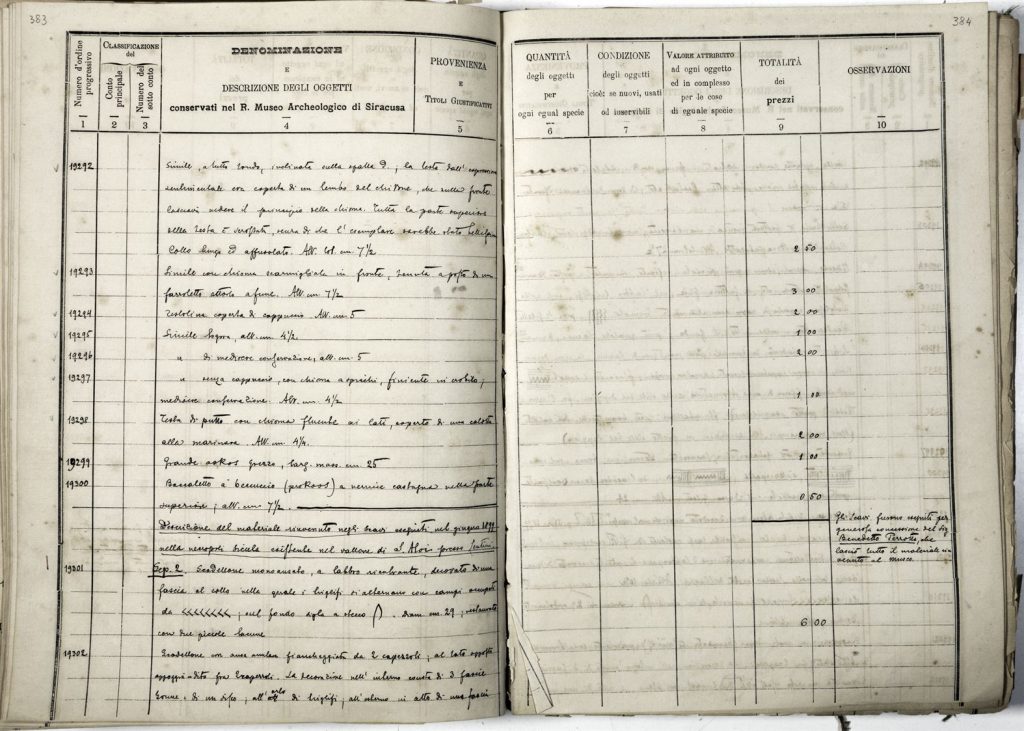 383
Numero d'ordine progressivo
CLASSIFICAZIONE del
Conto principale
Numero del sotto conto
DENOMINAZIONE
E
DESCRIZIONE DEGLI OGGETTI
conservati nel R. Museo Archeologico di Siracusa
PROVENIENZA
E
TITOLI GIUSTIFICATIVI
1 2 3 4 5
19292 Simile, a tutto tondo, inclinata sulla spalla D.; la testa dall'espressione
sentimentale era coperta di un lembo del chitone, che sulla fronte
lasciavi vedere il principio della chioma. Tutta la parte superiore
della testa è, senza di che l'esemplare sarebbe stato
Collo lungo ed affusolato. Alt. cm 7 1/2
19293 Simile con chioma in fronte, tenuta a posto da un
attorto a fune. Alt. cm 7 1/2
19294 Testolina coperta di cappuccio Alt. cm 5
19295 Simile logora, alt. cm 4 1/2
19296 " di mediocre conservazione, alt. cm 5
19297 " senza cappuccio, con chioma a, finiente in;
mediocre conservazione. Alt. cm 4 1/2
19298 Testa di putto con chioma fluente ai lati, coperto di una calotta
alla marinara. Alt. cm 4 1/4.
19299 Grande askos grezzo, larg. mass. cm 25
19300 Boccaletto a beccuccio (prokoos) a vernice castagna nella parte
superiore; alt. cm 7 1/2.
Descrizione del materiale rinvenuto negli scavi eseguiti nel giugno 1899
nella necropoli sicula esistente nel vallone di S. Aloi presso Lentini
19301 Sep. 2. Scodellone monoansato, a labbro rientrante, decorato di una
fascia al collo nella quale i triglifi si alternano con campi occupati
da <<<<<<<< ; sul fondo sigla a stecco. Diam cm. 29; restaurato
con due piccole lacune
19302 Scodellone con ansa fiancheggiata da 2 capezzoli; al lato opposto
fra. La decorazione nell'interno consta di 3 fascie
di un disco, all'orlo di triglifi, all'esterno in alto di una fascia
384
QUANTITÀ
degli oggetti
per
ogni egual specie
CONDIZIONE
degli oggetti
cioè: se nuovi, usati
od inservibili
VALORE ATTRIBUITO
ad ogni oggetto
ed in complesso
per le cose
di eguale specie
TOTALITÀ
dei
prezzi
OSSERVAZIONI
6 7 8 9 10
2 50
3 00
2 00
1 00
2 00
1 00
2 00
1 00
0 50
Gli Scavi furono eseguiti per
generosa concessione del Sig
Benedetto, che
lasciò tutto il materiale rin
venuto al museo.
6 00